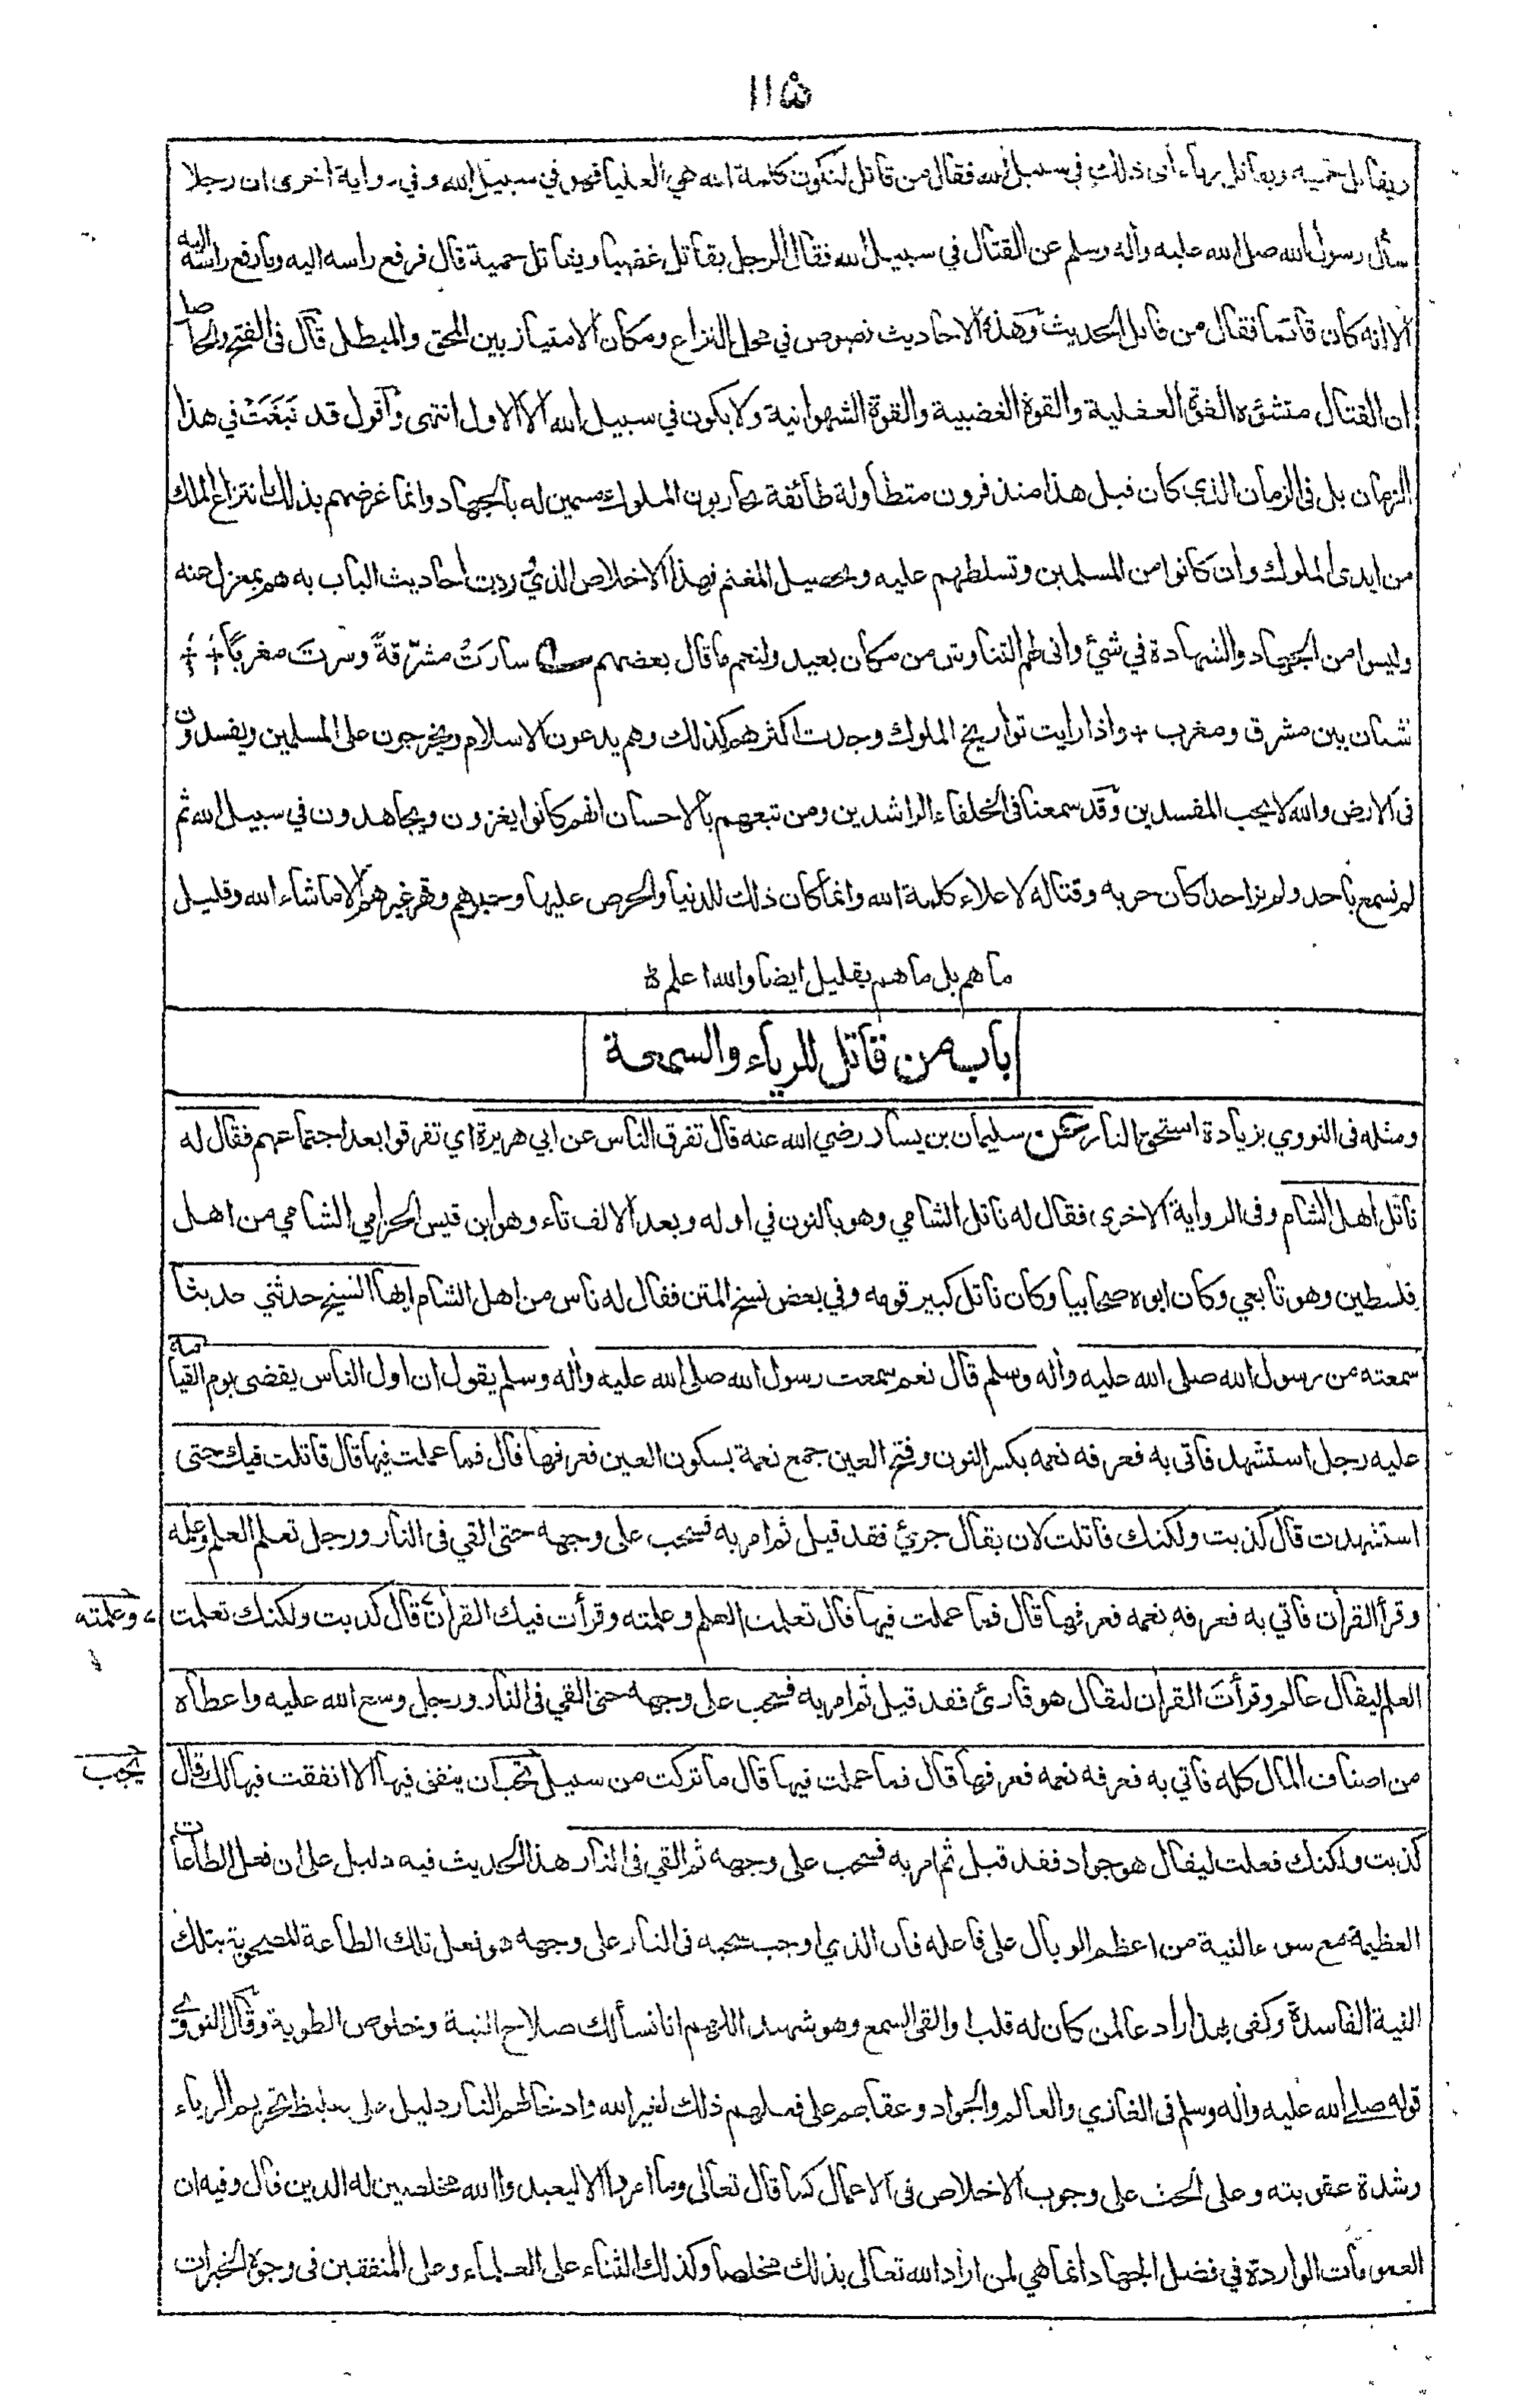 ١١٥
ويقاتل حمية ويقاتل رياء أى ذلك في سبيل الله فقال من قاتل لتكون كلمة الله هي العليا فهو في سبيل الله وفي رواية اخرى ان رجلا
سأل رسول الله صلى الله عليه وأله وسلم عن القتال في سبيل الله فقال الرجل يقاتل غضبا ويقاتل حمية قال فرفع راسه اليه وما رفع راسه اليه
الا انه كان قائما فقال من قاتل الحديث وهذه الاحاديث نصوص في محل النزاع ومكان الامتياز بين المحق والمبطل قال فى الفتح والحاصل
ان القتال منشؤه القوة العقلية والقوة الغضبية والقوة الشهوانية ولا يكون في سبيل الله الا الاول انتهى وأقول قد نبغت في هذا
الزمان بل فى الزمان الذي كان قبل هذا منذ قرون متطاولة طائفة يحاربون الملوك مسمين له بالجهاد وانما غرضهم بذلك انتزاع الملك
من ايدى الملوك وان كانوا من المسلمين وتسلطهم عليه وتحصيل المغنم فهذا الاخلاص الذي وردت احاديث الباب به هم بمعزل عنه
وليسوا من الجهاد والشهادة في شئ وانى لهم التناوش من مكان بعيد ولنعم ما قال بعضهم سارت مشرّقةً وسرتَ مغربًا
شتان بين مشرق ومغرب + واذا رايت تواريخ الملوك وجدت اكثرهم كذلك وهم يدعون الاسلام ويخرجون على المسلمين ويفسدون
فى الارض والله لا يحب المفسدين وقد سمعنا فى الخلفاء الراشدين ومن تبعهم بالاحسان انهم كانوا يغزون ويجاهدون في سبيل الله ثم
لم نسمع باحد ولم نر احدا كان حربه وقتاله لاعلاء كلمة الله وانما كان ذلك للدنيا والحرص عليها وقهر غيرهم الا ما شاء الله وقليل
ما هم بل ما هم بقليل ايضا والله اعلم
باب من قاتل للرياء والسمعة
ومثله فى النووي بزيادة استحق النار عن سليمان بن يسار رضي الله عنه قال تفرق الناس عن ابي هريرة اي تفرقوا بعد اجتماعهم فقال له
ناتل اهل الشام وفى الرواية الاخرى فقال له ناتل الشامي وهو بالنون في اوله وبعد الالف تاء وهو ابن قيس الحزامي الشامي من اهل
فلسطين وهو تابعي وكان ابوه صحابيا وكان ناتل كبير قومه وفي بعض نسخ المتن فقال له ناس من اهل الشام ايها الشيخ حدثني حديثا
سمعته من رسول الله صلى الله عليه وأله وسلم قال نعم سمعت رسول الله صلى الله عليه وأله وسلم يقول ان اول الناس يقضى يوم القيامة
عليه رجل استشهد فاتى به فعرفه نعمه بكسر النون وفتح العين جمع نعمة بسكون العين فعرفها قال فما عملت فيها قال قاتلت فيك حتى
استشهدت قال كذبت ولكنك قاتلت لان يقال جريئ فقد قيل ثم امر به فسحب على وجهه حتى القي فى النار ورجل تعلم العلم وعلمه
وقرأ القرأن فاتي به فعرفه نعمه فعرفها قال فما عملت فيها قال تعلمت العلم وعلمته وقرأت فيك القرأن قال كذبت ولكنك تعلمت
وعلمته
العلم ليقال عالم وقرأت القرأن ليقال هو قارئ فقد قيل ثم امر به فسحب على وجهه حتى القي فى النار ورجل وسع الله عليه واعطاه
من اصناف المال كله فاتي به فعرفه نعمه فعرفها قال فما عملت فيها قال ما تركت من سبيل تحب ان ينفق فيها الا انفقت فيها لك قال
يجب
كذبت ولكنك فعلت ليقال هو جواد فقد قيل ثم امر به فسحب على وجهه ثم القي فى النار هذا الحديث فيه دليل على ان فعل الطاعات
العظيمة مع سوء النية من اعظم الوبال على فاعله فان الذي اوجب سحبه فى النار على وجهه هو فعل تلك الطاعة المصحوبة بتلك
النية الفاسدة وكفى بهذا رادعا لمن كان له قلب او القى السمع وهو شهيد اللهم انا نسألك صلاح النية وخلوص الطوية وقال النووي
قوله صلى الله عليه وأله وسلم فى الغازي والعالم والجواد وعقابهم على فعلهم ذلك لغير الله وادخالهم النار دليل على تغليظ تحريم الرياء
وشدة عقوبته وعلى الحث على وجوب الاخلاص فى الاعمال كما قال تعالى وما امروا الا ليعبدوا الله مخلصين له الدين قال وفيه ان
العمومات الواردة في فضل الجهاد انما هي لمن اراد الله تعالى بذلك مخلصا وكذلك الثناء على العلماء وعلى المنفقين فى وجوه الخيرات